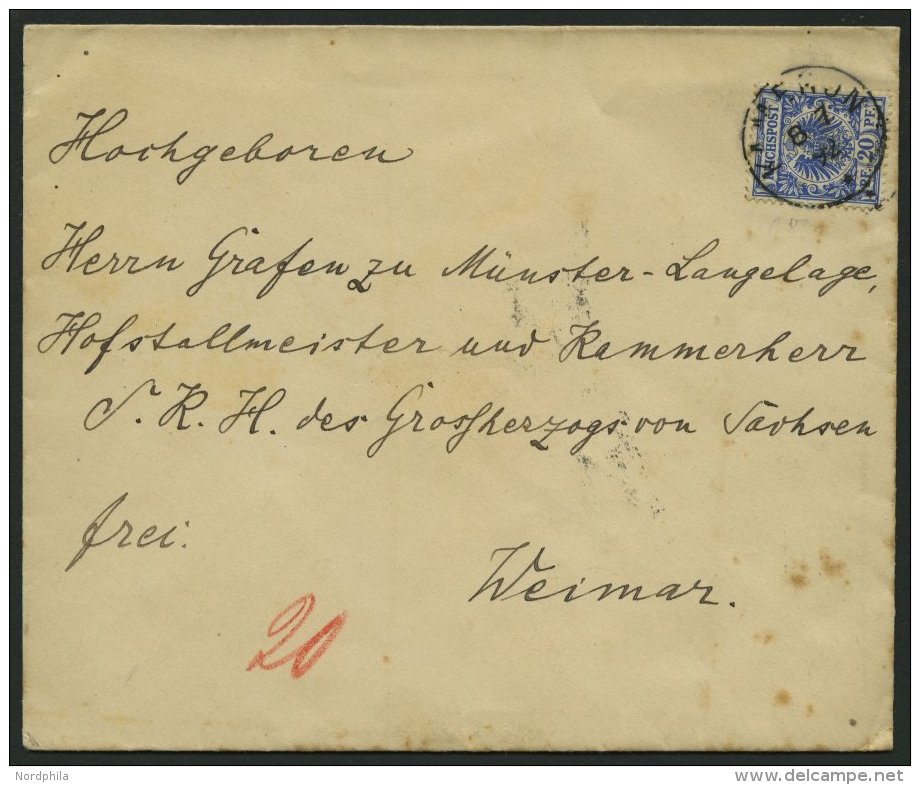 Hochgeboren
Herrn Grafen zu Münster-Langelage,
Hofstallmeister und Kammerherr
S. K. H. des Grossherzogs von Sachsen
frei.
Weimar.
20
KAMERUN
8 7
92
REICHSPOST
PF. 20 PF.
Nordphila
www.delcampe.net